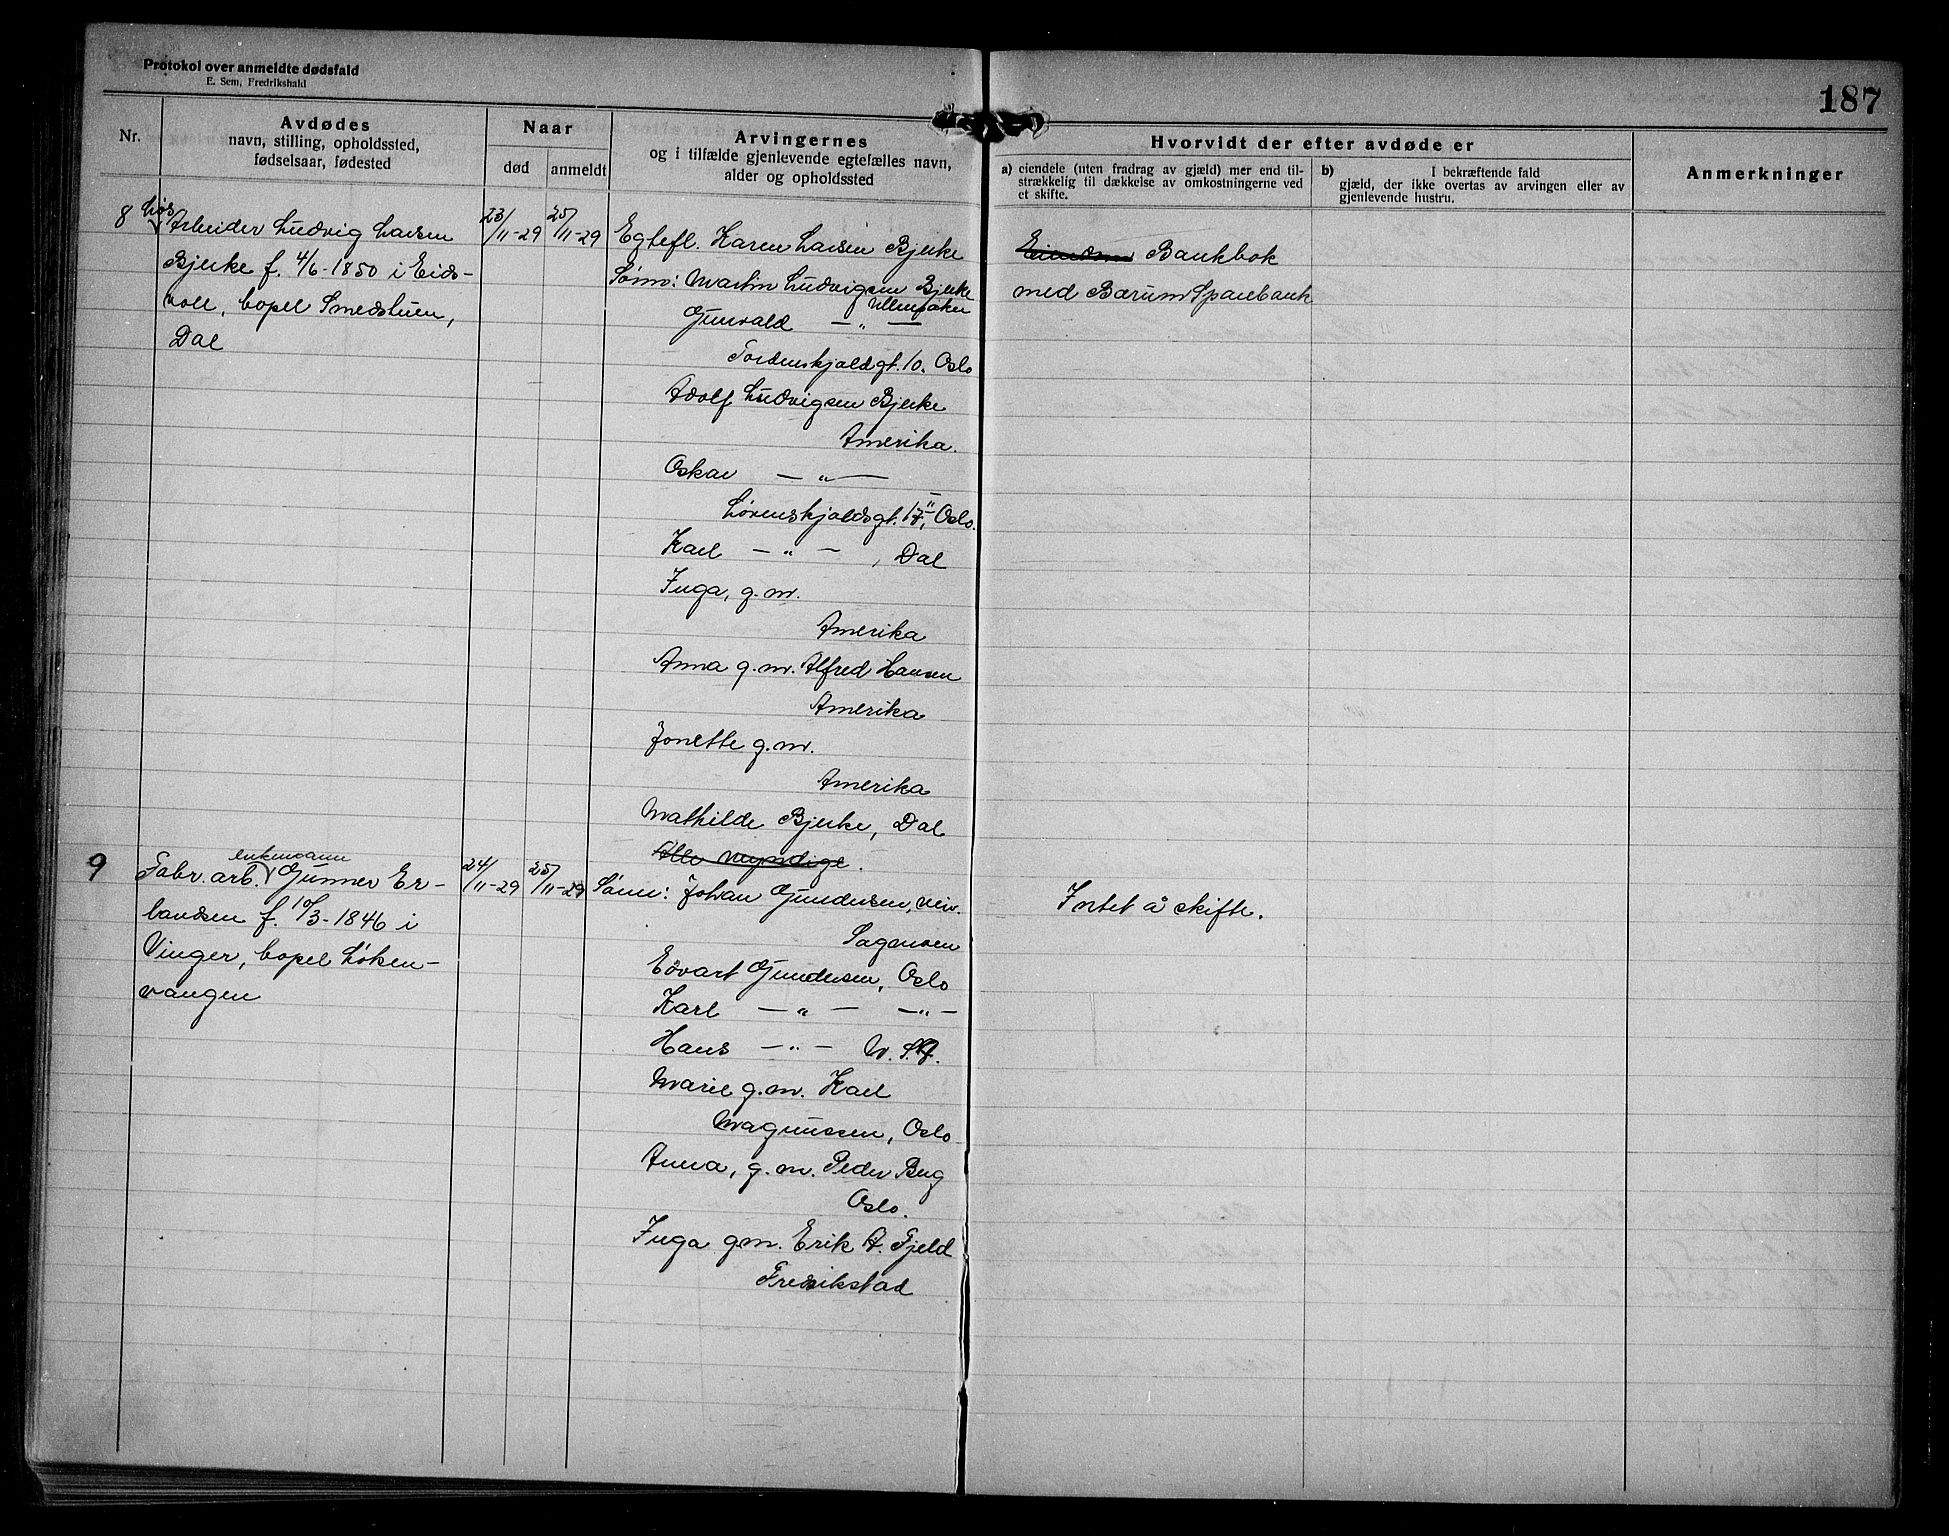 Protokol over anmeldte dødsfald
E. Sem, Fredrikshald
187
Nr.
Avdødes
navn, stilling, opholdssted,
fødselsaar, fødested
Naar
død
anmeldt
Arvingernes
og i tilfælde gjenlevende egtefælles navn,
alder og opholdssted
Hvorvidt der efter avdøde er
a) eiendele (uten fradrag av gjæld) mer end til-
strækkelig til dækkelse av omkostningerne ved
et skifte.
b) I bekræftende fald
gjæld, der ikke overtas av arvingen eller av
gjenlevende hustru.
Anmerkninger
8
Løs
Arbeider Ludvig Larsen
Bjerke f. 4/6-1850 i Eids-
voll, bopel Smedstuen,
Dal
23/11-29
25/11-29
Egtefl. Karen Larsen Bjerke
Sønn: Martin Ludvigsen Bjerke
Ullensaker
Gunvald — " —
Tordenskjoldgt. 10. Oslo
Adolf Ludvigsen Bjerke
Amerika.
Oskar — " —
Lørenskjoldsgt. 17, Oslo.
Karl — " — , Dal
Inga, g.m.
Amerika
Anna g.m. Alfred Hansen
Amerika
Jonette g.m.
Amerika
Mathilde Bjerke, Dal
Alle myndige.
Eiendom Bankbok
med Bærum Sparebank
9
enkemann
Fabr. arb. Gunner Er-
landsen f. 10/3-1846 i
Vinger, bopel Løken-
vangen
24/11-29
25/11-29
Sønn: Johan Gundersen,
Sagmoen
Edvart Gundersen, Oslo
Karl — " — — " —
Hans — " — U.S.A.
Marie g.m. Karl
Magnussen, Oslo
Anna, g.m. Peder Berg
Oslo.
Inga g.m. Erik A. Fjeld
Fredrikstad
Intet å skifte.